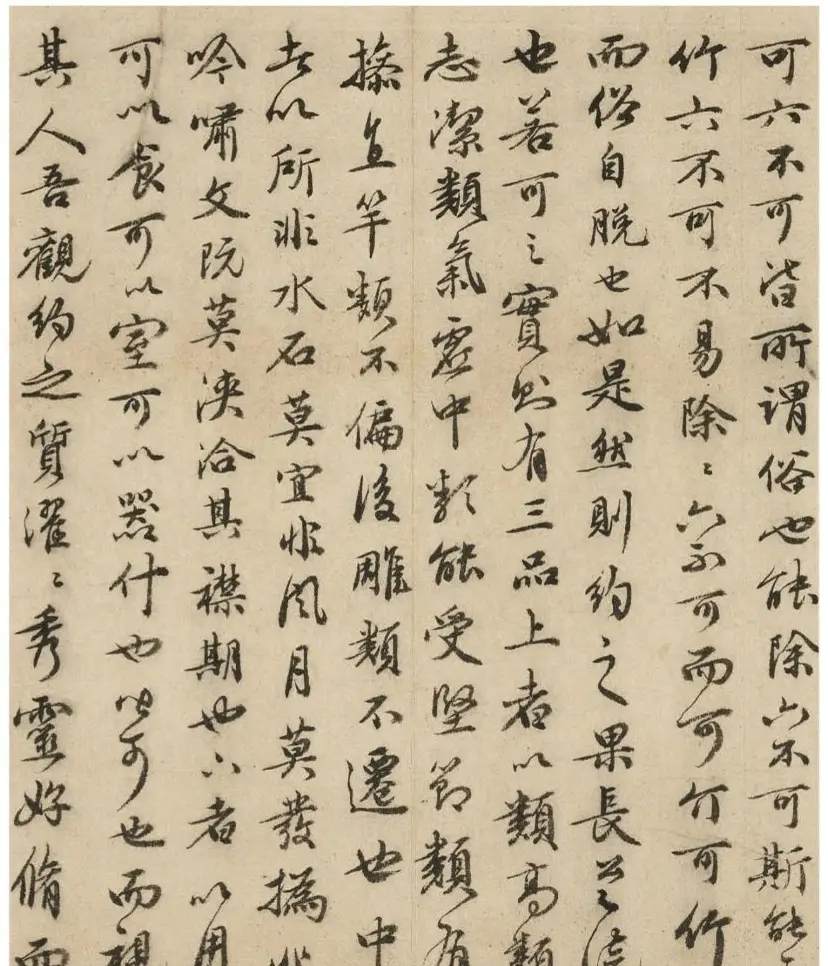 可六不可皆所謂俗也能除六不可斯能
竹六不可不易除〻六不可而可竹可竹
而俗自脫也如是然則約之果長是
也若可之實則有三品上者以類高類
志潔類氣虛中類能受堅節類有
操直竿類不偏後雕類不遷也中
者以所非水石莫宜非風月莫發撝非
吟嘯文阮莫浹洽其襟期也下者以用
可以食可以室可以器什也皆可也而視
其人吾觀約之質濯〻秀靈好脩而